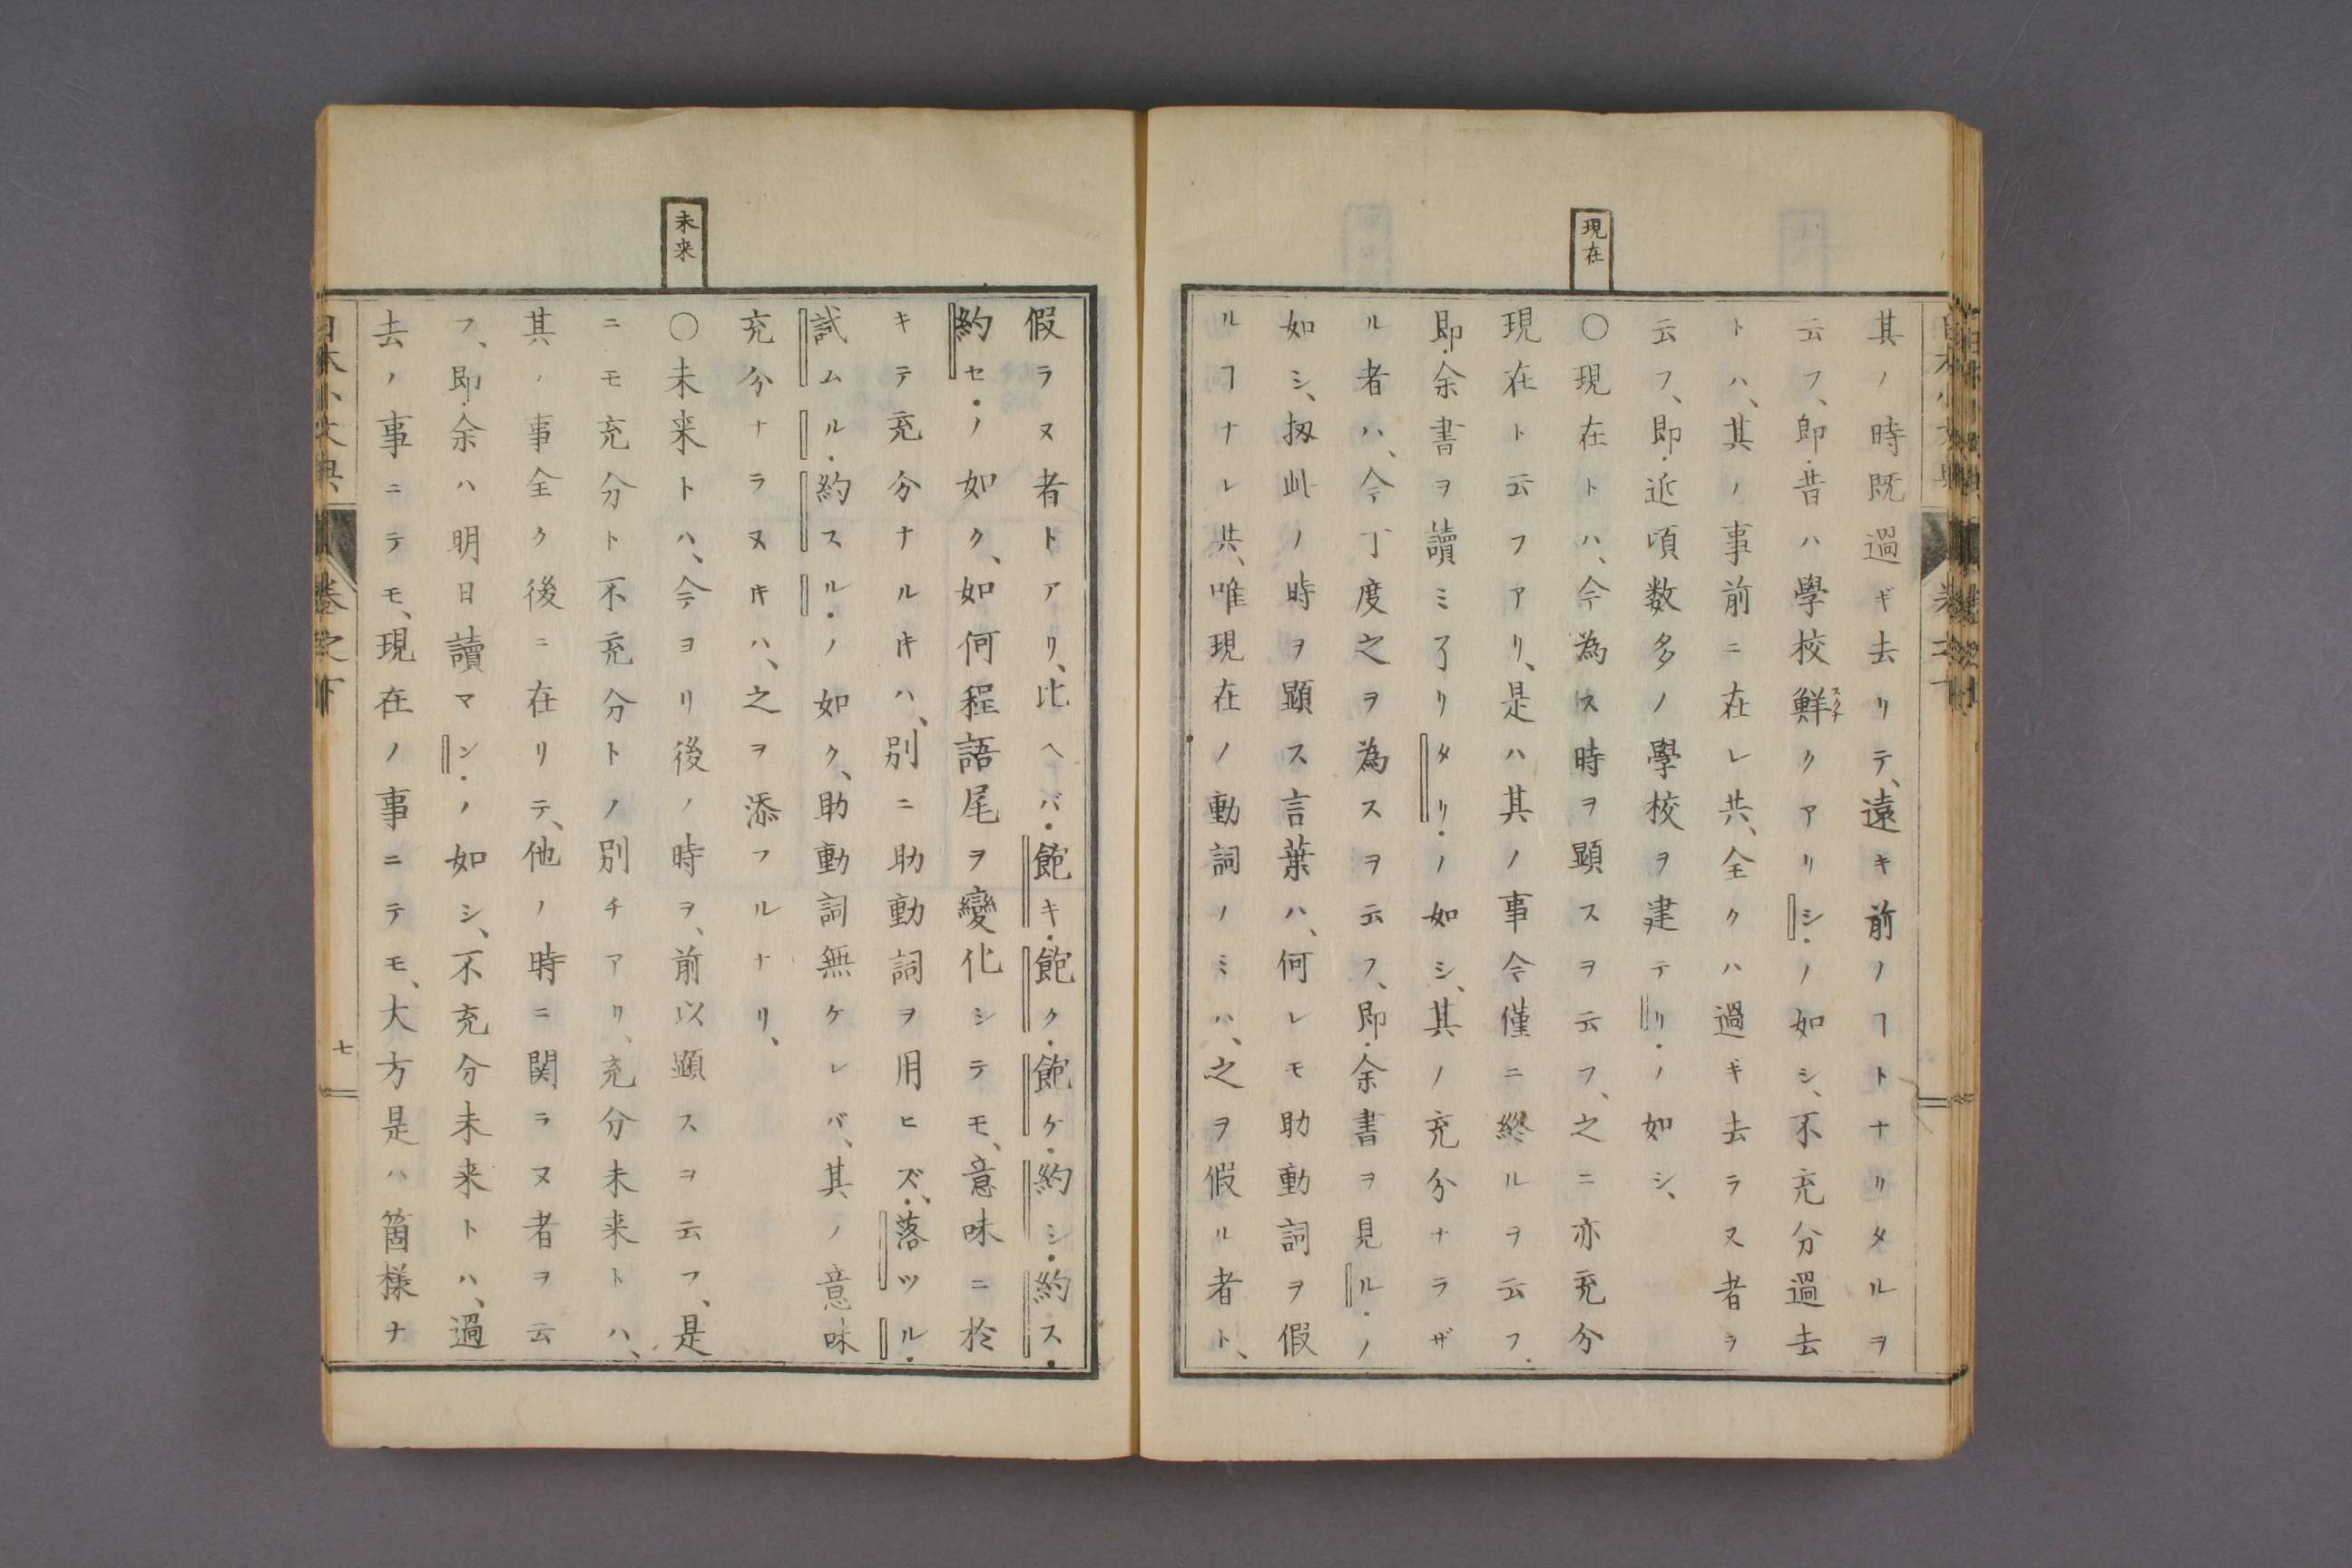 現在
其ノ時既過ギ去リテ、遠キ前ノヿトナリタルヲ
云フ、即・昔ハ學校鮮クアリシ・ノ如シ、不充分過去
スクナ
トハ、其ノ事前ニ在レ共、全クハ過ギ去ラヌ者ヲ
云フ、即・近頃数多ノ學校ヲ建テリ・ノ如シ、
〇現在トハ、今為ス時ヲ顕スヲ云フ、之ニ亦充分
現在ト云フアリ、是ハ其ノ事今僅ニ終ルヲ云フ、
即・余書ヲ讀ミ了リタリ・ノ如シ、其ノ充分ナラザ
ル者ハ、今丁度之ヲ為スヲ云フ、即・余書ヲ見ル・ノ
如シ、扨此ノ時ヲ顕ス言葉ハ、何レモ助動詞ヲ假
ルヿナレ共、唯現在ノ動詞ノミハ、之ヲ假ル者ト、
未来
假ラヌ者トアリ、比ヘバ・飽キ・飽ク・飽ケ・約シ・約ス・
約セ・ノ如ク、如何程語尾ヲ變化シテモ、意味ニ於
キテ充分ナル𪜈ハ、別ニ助動詞ヲ用ヒズ、・落ツル・
試ムル・約スル・ノ如ク、助動詞無ケレバ、其ノ意味
充分ナラヌ𪜈ハ、之ヲ添フルナリ、
〇未来トハ、今ヨリ後ノ時ヲ、前以顕スヲ云フ、是
ニモ充分ト不充分トノ別チアリ、充分未来トハ、
其ノ事全ク後ニ在リテ、他ノ時ニ関ラヌ者ヲ云
フ、即・余ハ明日讀マン・ノ如シ、不充分未来トハ、過
去ノ事ニテモ、現在ノ事ニテモ、大方是ハ箇様ナ
日本小文典 巻之下 七